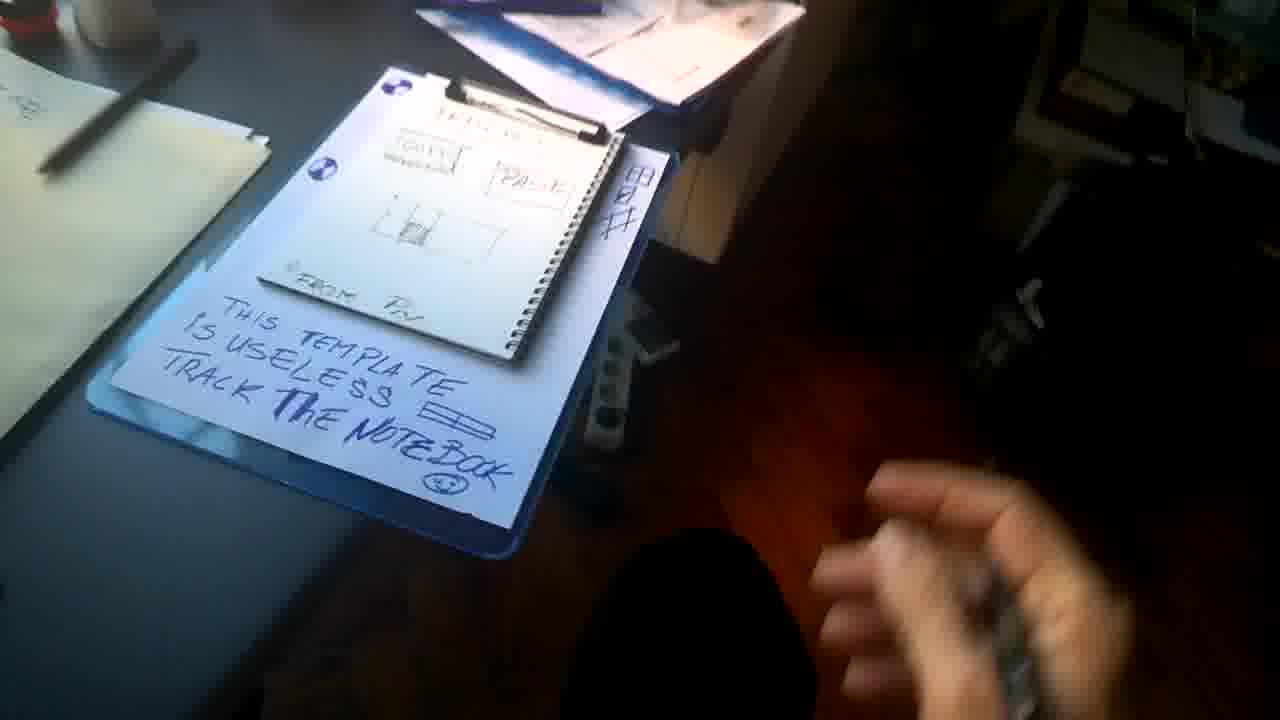 COPY
PASTE
FROM PIV
THIS TEMPLATE
IS USELESS
TRACK THE NOTEBOOK